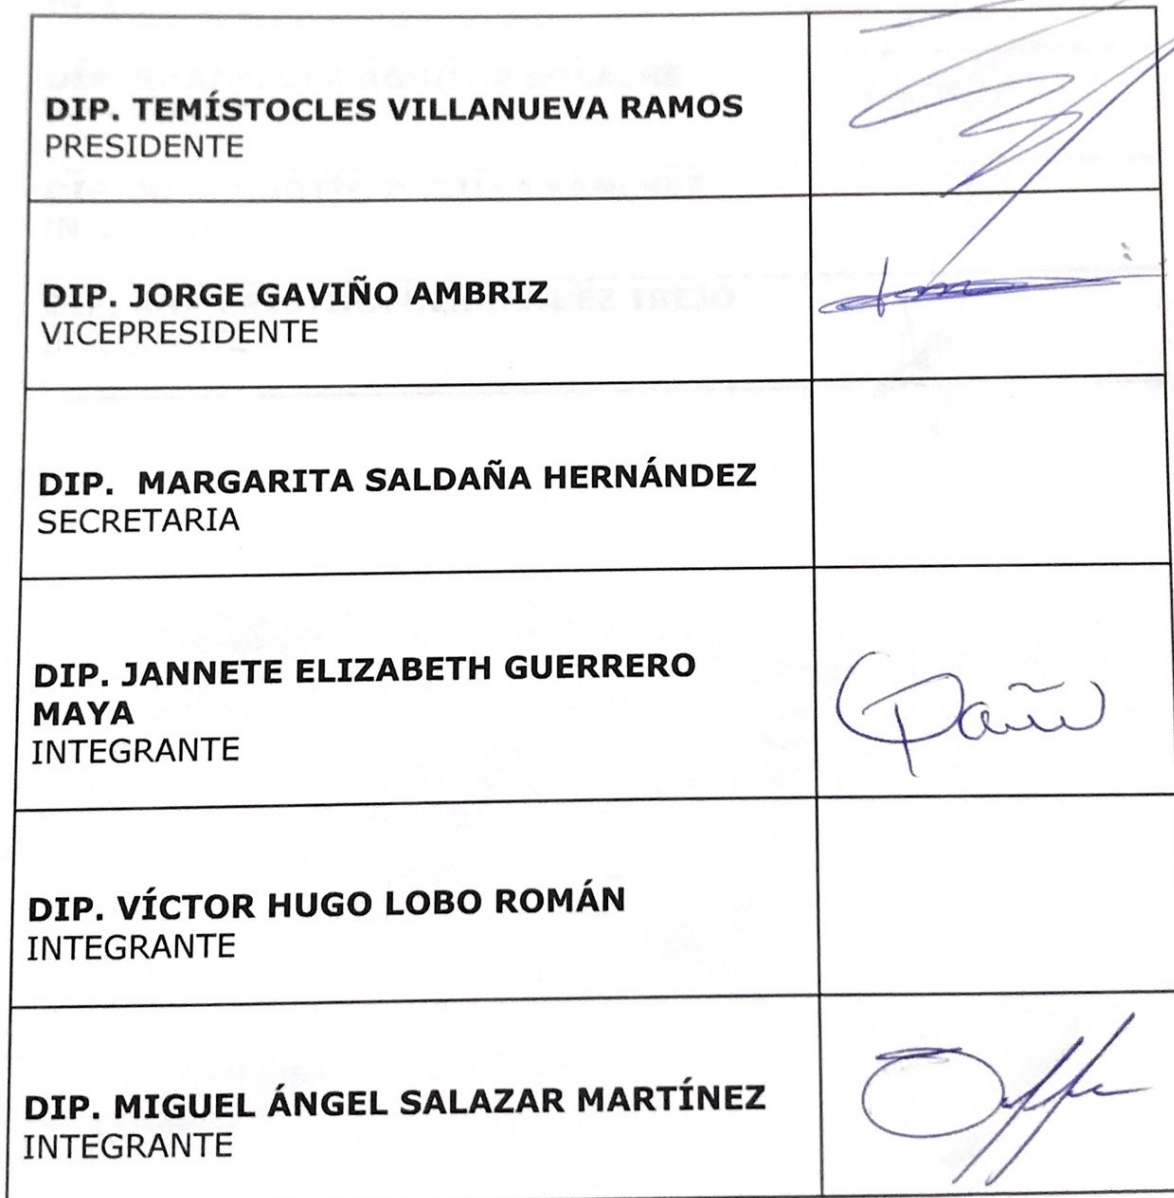 DIP. TEMÍSTOCLES VILLANUEVA RAMOS
PRESIDENTE
DIP. JORGE GAVIÑO AMBRIZ
VICEPRESIDENTE
DIP. MARGARITA SALDAÑA HERNÁNDEZ
SECRETARIA
DIP. JANNETE ELIZABETH GUERRERO
MAYA
INTEGRANTE
DIP. VÍCTOR HUGO LOBO ROMÁN
INTEGRANTE
DIP. MIGUEL ÁNGEL SALAZAR MARTÍNEZ
INTEGRANTE